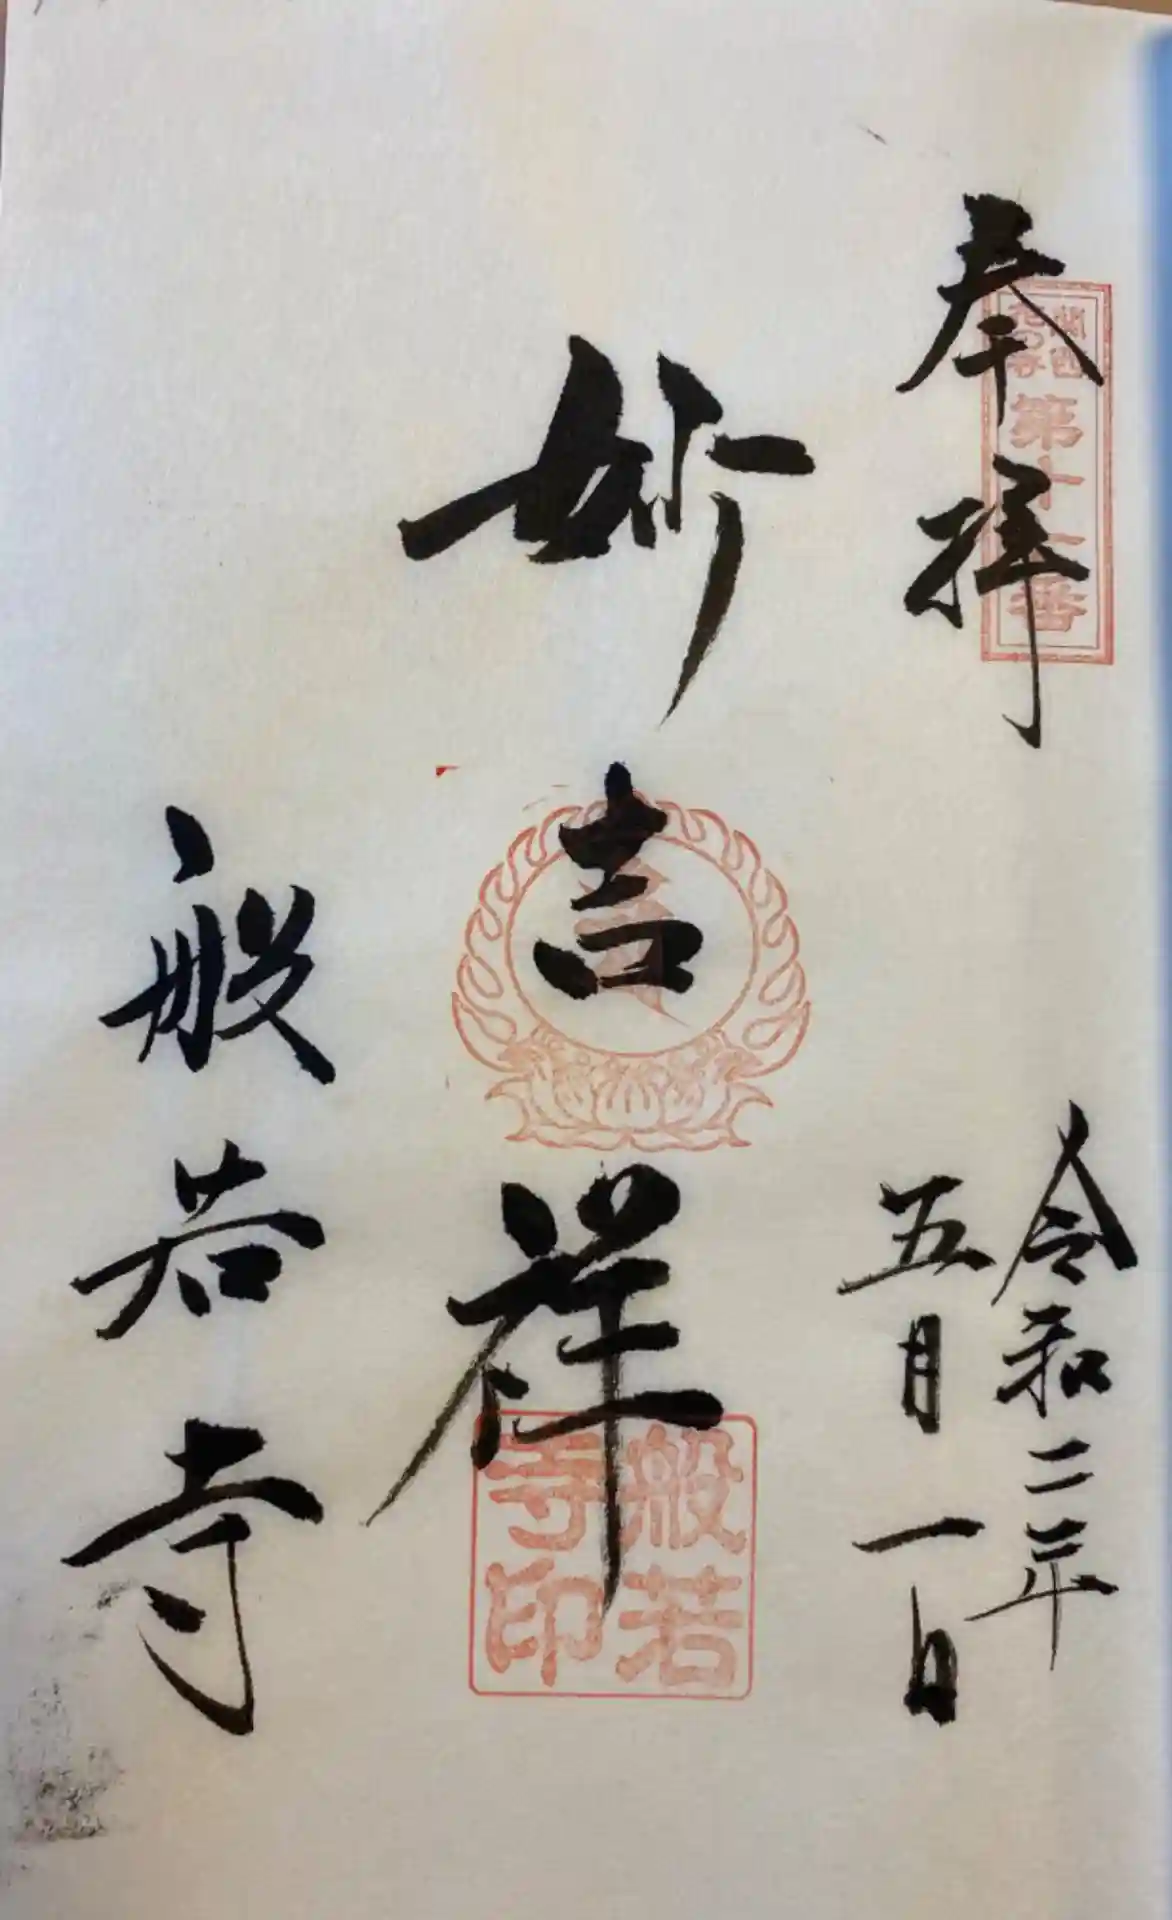 奉拝
関西
花の寺
第十七番
令和二年
五月一日
妙吉祥
般若
寺印
般若寺